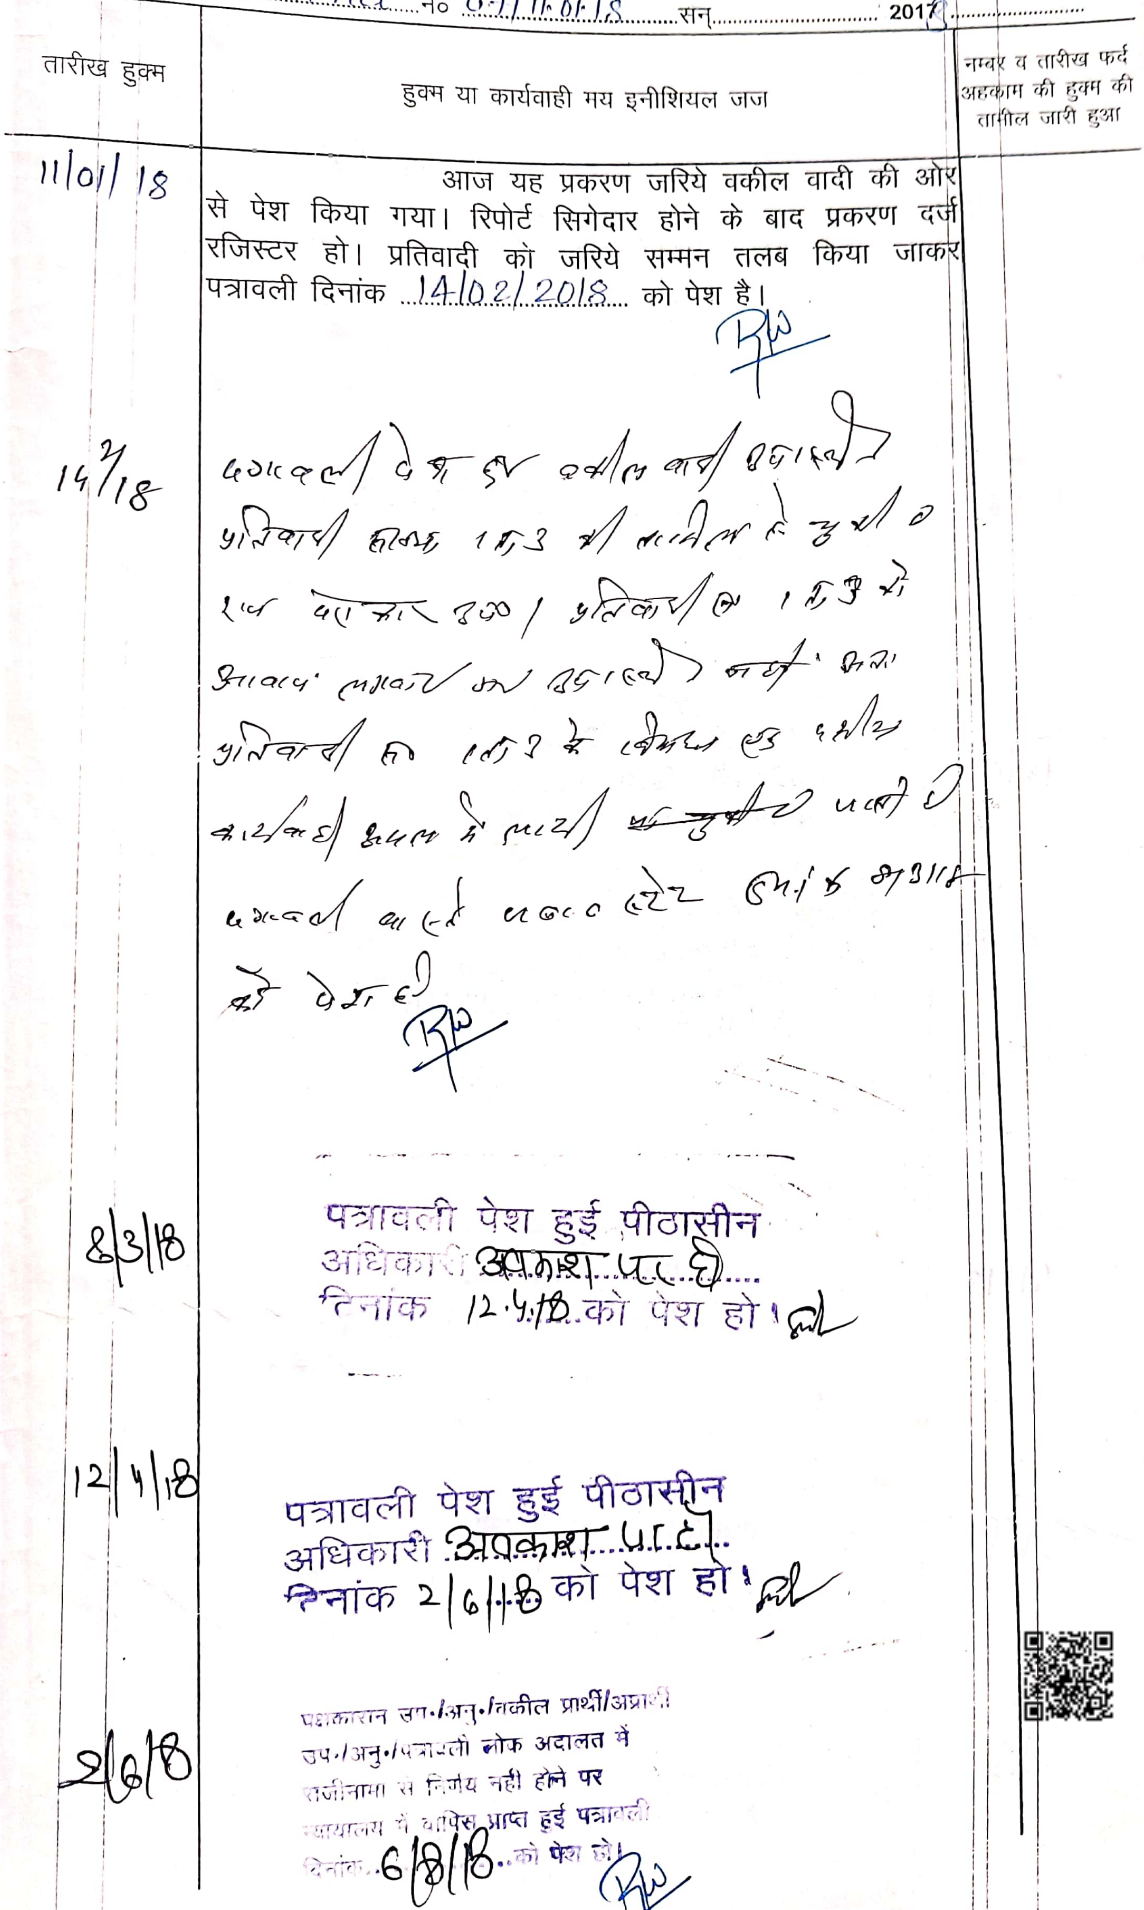 नo सन् 2018
तारीख हुक्म
हुक्म या कार्यवाही मय इनीशियल जज
नम्बर व तारीख फर्द
अहकाम की हुक्म की
तामील जारी हुआ
11/01/18
आज यह प्रकरण जरिये वकील वादी की ओर
से पेश किया गया। रिपोर्ट सिगेदार होने के बाद प्रकरण दर्ज
रजिस्टर हो। प्रतिवादी को जरिये सम्मन तलब किया जाकर
पत्रावली दिनांक 14/02/2018 को पेश है।
14/2/18
पत्रावली पेश हुई वकील वादी उपस्थित
प्रतिवादी 1 ता 3 की तामील हो चुकी है
प्रतिवादी 1 ता 3 को
आवाज लगवाई गई उपस्थित नहीं अतः
प्रतिवादी 1 ता 3 के विरूद्ध एक पक्षीय
कार्यवाही अमल में लायी जाती है
पत्रावली वास्ते
को पेश हो
8/3/18
पत्रावली पेश हुई पीठासीन
अधिकारी अवकाश पर है
दिनांक 12.4.18 को पेश हो।
12/4/18
पत्रावली पेश हुई पीठासीन
अधिकारी अवकाश पर है
दिनांक 2/6/18 को पेश हो।
2/6/18
पक्षकारान उप./अनु./वकील प्रार्थी/अप्रार्थी
उप./अनु./पत्रावली लोक अदालत में
राजीनामा से निर्णय नही होने पर
न्यायालय में वापिस प्राप्त हुई पत्रावली
दिनांक 6/8/18 को पेश हो।